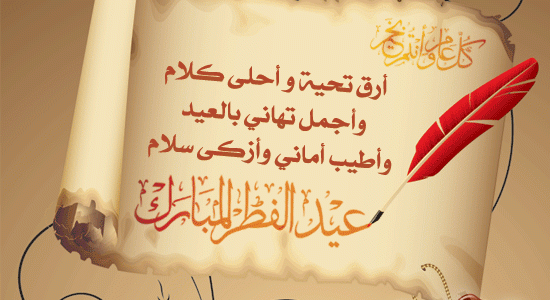 كل عام وأنتم بخير
أرق تحية و أحلى كلام
وأجمل تهاني بالعيد
وأطيب أماني وأزكى سلام
عيد الفطر المبارك